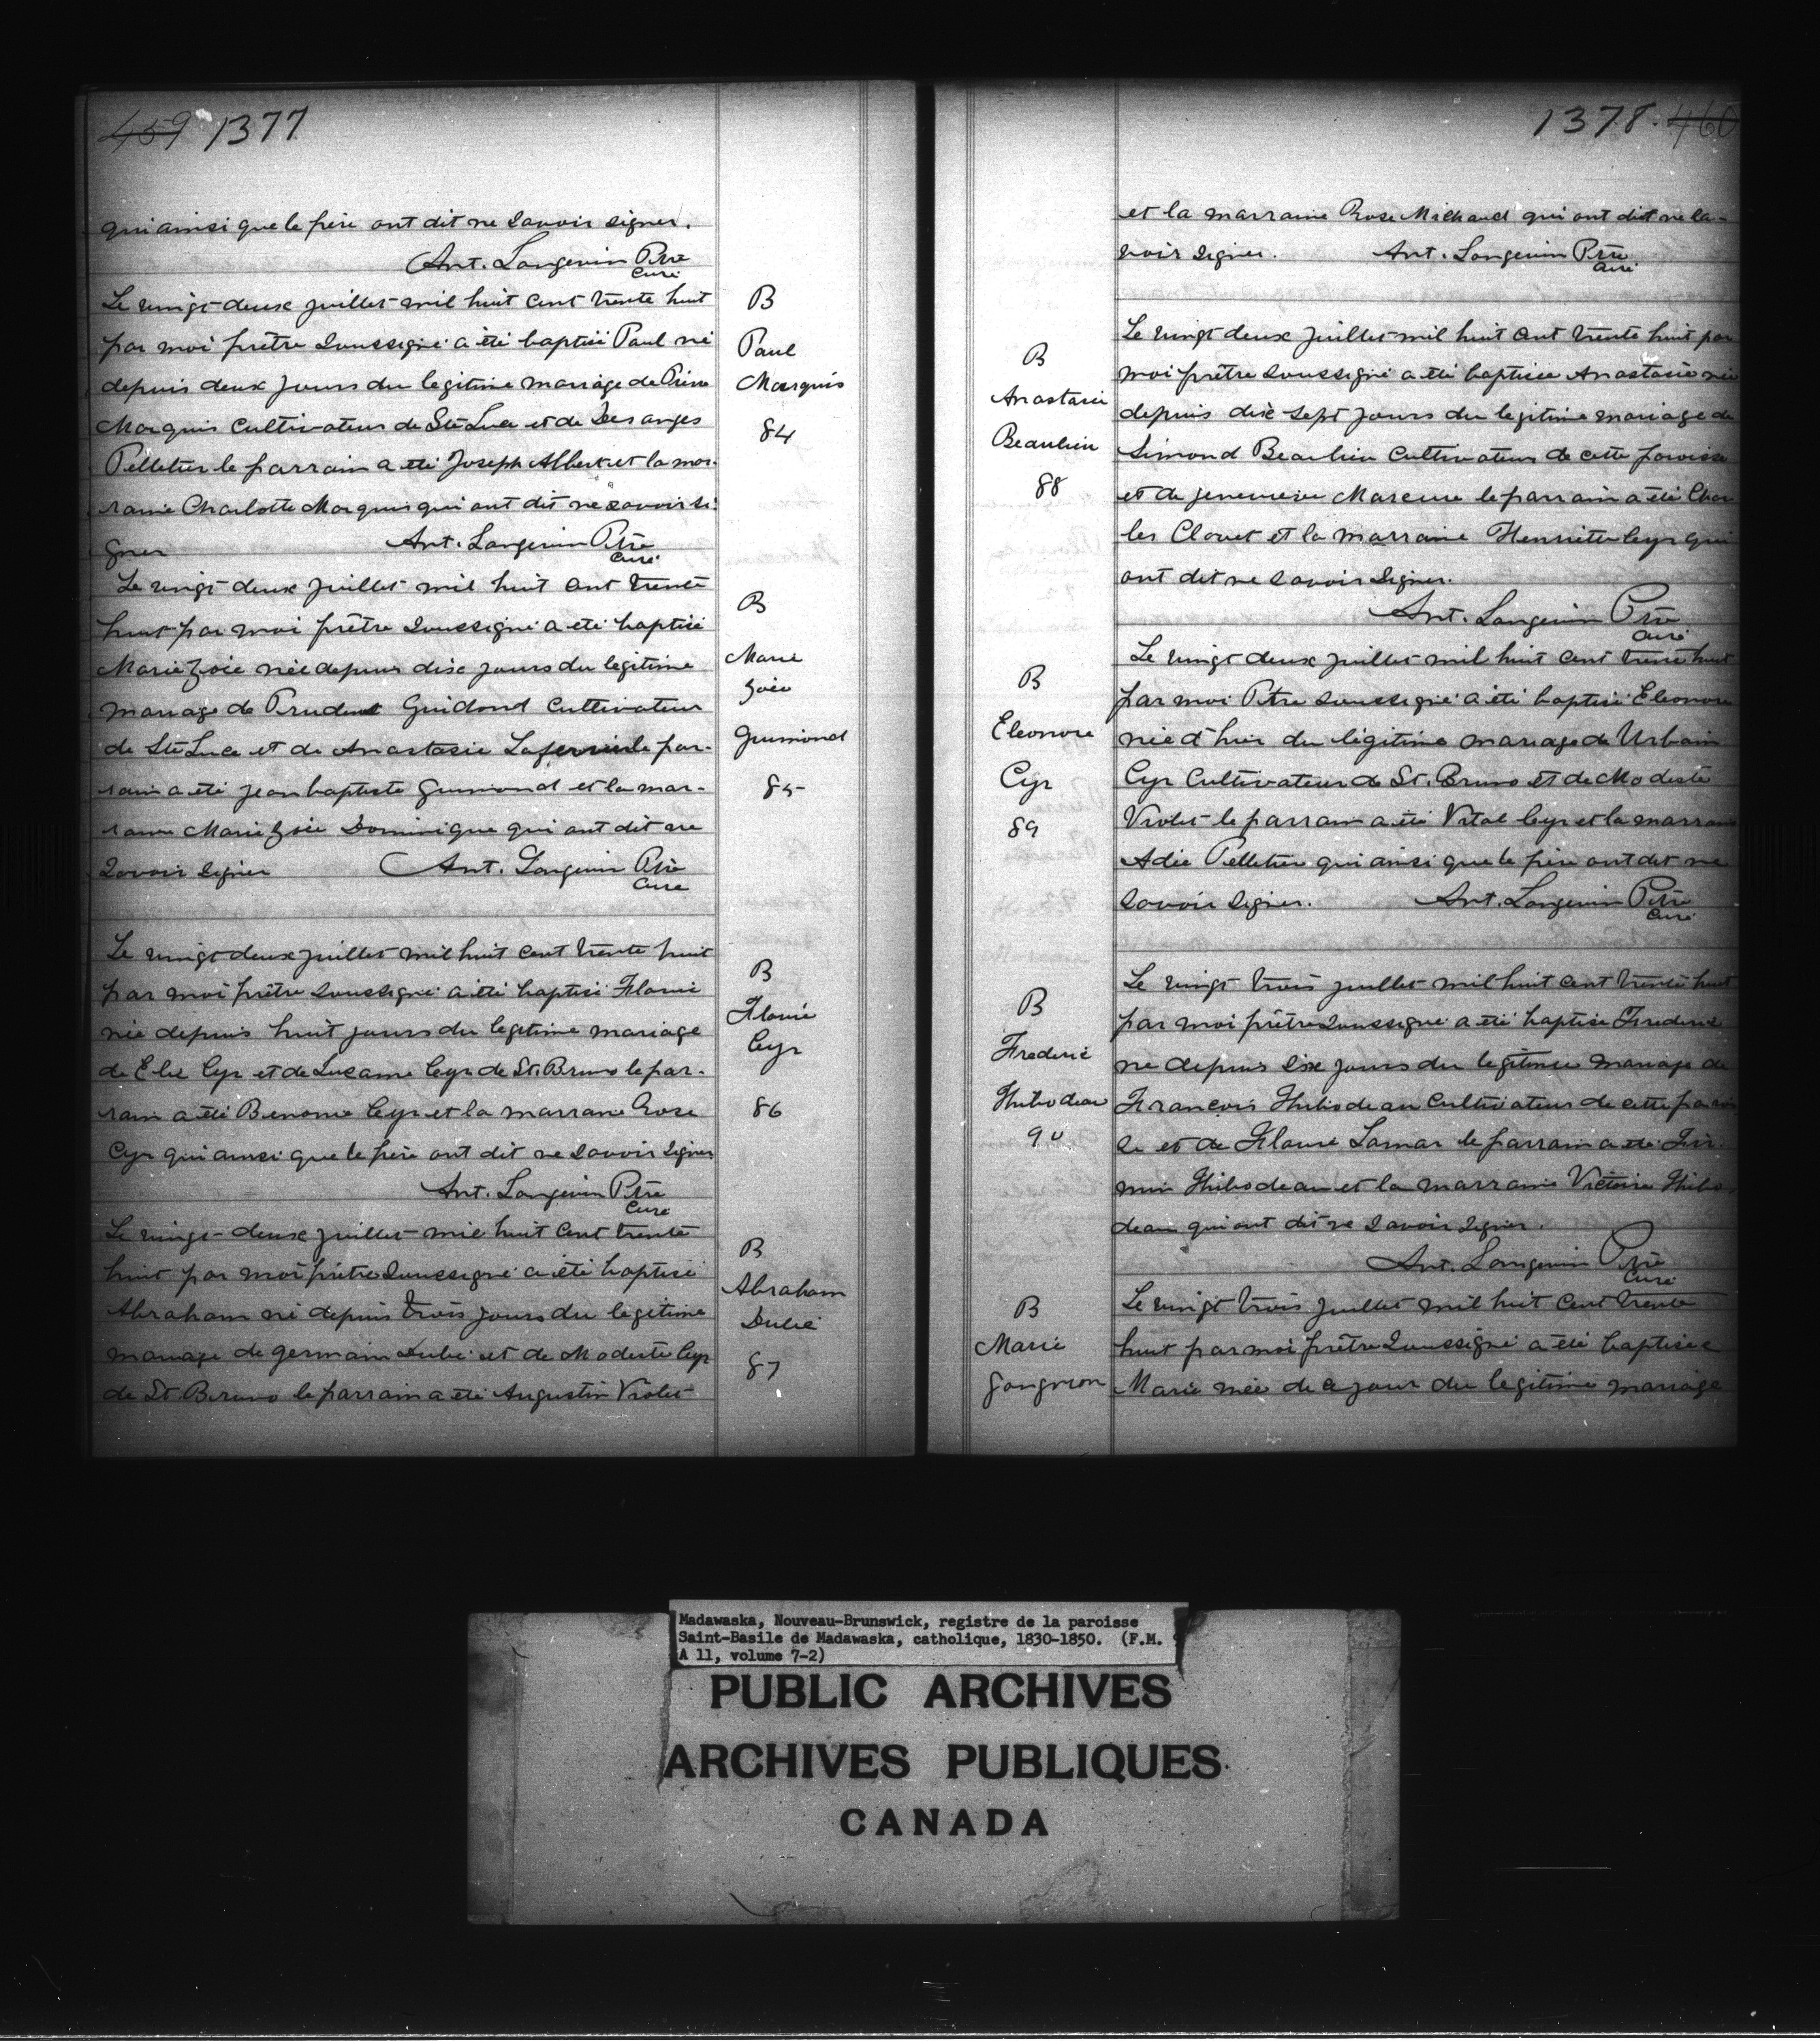 459 1377
qui ainsi que le père ont dit ne savoir signer.
Ant. Langevin Ptre
Curé
Le vingt-deux juillet mil huit cent trente huit
par moi prêtre soussigné a été baptisé Paul né
depuis deux jours du legitime mariage de Pierre
Marquis Cultivateur de Ste Luce et de Desanges
Pelletier le parrain a été Joseph Albert et la mar-
raine Charlotte Marquis qui ont dit ne savoir si-
gner Ant. Langevin Ptre
Curé
B
Paul
Marquis
84
Le vingt deux juillet mil huit cent trente
huit par moi prêtre soussigné a été baptisé
Marie Zoïe née depuis dix jours du legitime
mariage de Prudent Guidond Cultivateur
de Ste Luce et de Anastasie le par-
rain a été jean baptiste Guimond et la mar-
raine Marie Zoïe Dominique qui ont dit ne
savoir signer Ant. Langevin Ptre
Curé
B
Marie
Zoïe
Guimond
85
Le vingt-deux juillet mil huit cent trente huit
par moi prêtre soussigné a été baptisé Flavie
née depuis huit jours du legitime mariage
de Elie Cyr et de Susanne Cyr de St. Bruno le par-
rain a été Benonie Cyr et la marraine Rose
Cyr qui ainsi que le père ont dit ne savoir signer
Ant. Langevin Ptre
Curé
B
Flavie
Cyr
86
Le vingt-deux juillet mil huit cent trente
huit par moi prêtre soussigné a été baptisé
Abraham né depuis trois jours du legitime
mariage de germain Dubé et de Modeste Cyr
de St. Bruno le parrain a été Augustin Violet
B
Abraham
Dubé
87
1378. 460
et la marraine Rose Michaud qui ont dit ne sa-
voir signer. Ant. Langevin Ptre
Curé
B
Anastasie
Beaulieu
88
Le vingt deux juillet mil huit cent trente huit par
moi prêtre soussigné a été baptisée Anastasie née
depuis dix sept jours du legitime mariage de
Simond Beaulieu Cultivateur de cette paroisse
et de jenevieve le parrain a été Char
les Clouet et la marraine Henriette Cyr qui
ont dit ne savoir signer.
Ant. Langevin Ptre
Curé
B
Eleonore
Cyr
89
Le vingt deux juillet mil huit cent trente huit
par moi Ptre soussigné a été baptisé Eleonore
née d'hier du légitime mariage de Urbain
Cyr Cultivateur de St. Bruno et de Modeste
Violet le parrain a été Vital Cyr et la marraine
Adée Pelletier qui ainsi que le père ont dit ne
savoir signer. Ant. Langevin Ptre
Curé
B
Frederic
Thibodeau
90
Le vingt trois juillet mil huit cent trente huit
par moi prêtre soussigné a été baptisé Frederic
né depuis six jours du legitime mariage de
Francois Thibodeau Cultivateur de cette parois
se et de Flavie Lamar le parrain a été Fir
min Thibodeau et la marraine Victoire Thibo
deau qui ont dit ne savoir signer.
Ant. Langevin Ptre
Curé
B
Marie
Gongnion
Le vingt trois juillet mil huit cent trente
huit par moi prêtre soussigné a été baptisée
Marie née de ce jour du legitime mariage
Madawaska, Nouveau-Brunswick, registre de la paroisse
Saint-Basile de Madawaska, catholique, 1830-1850. (F.M. 9
A 11, volume 7-2)
PUBLIC ARCHIVES
ARCHIVES PUBLIQUES
CANADA